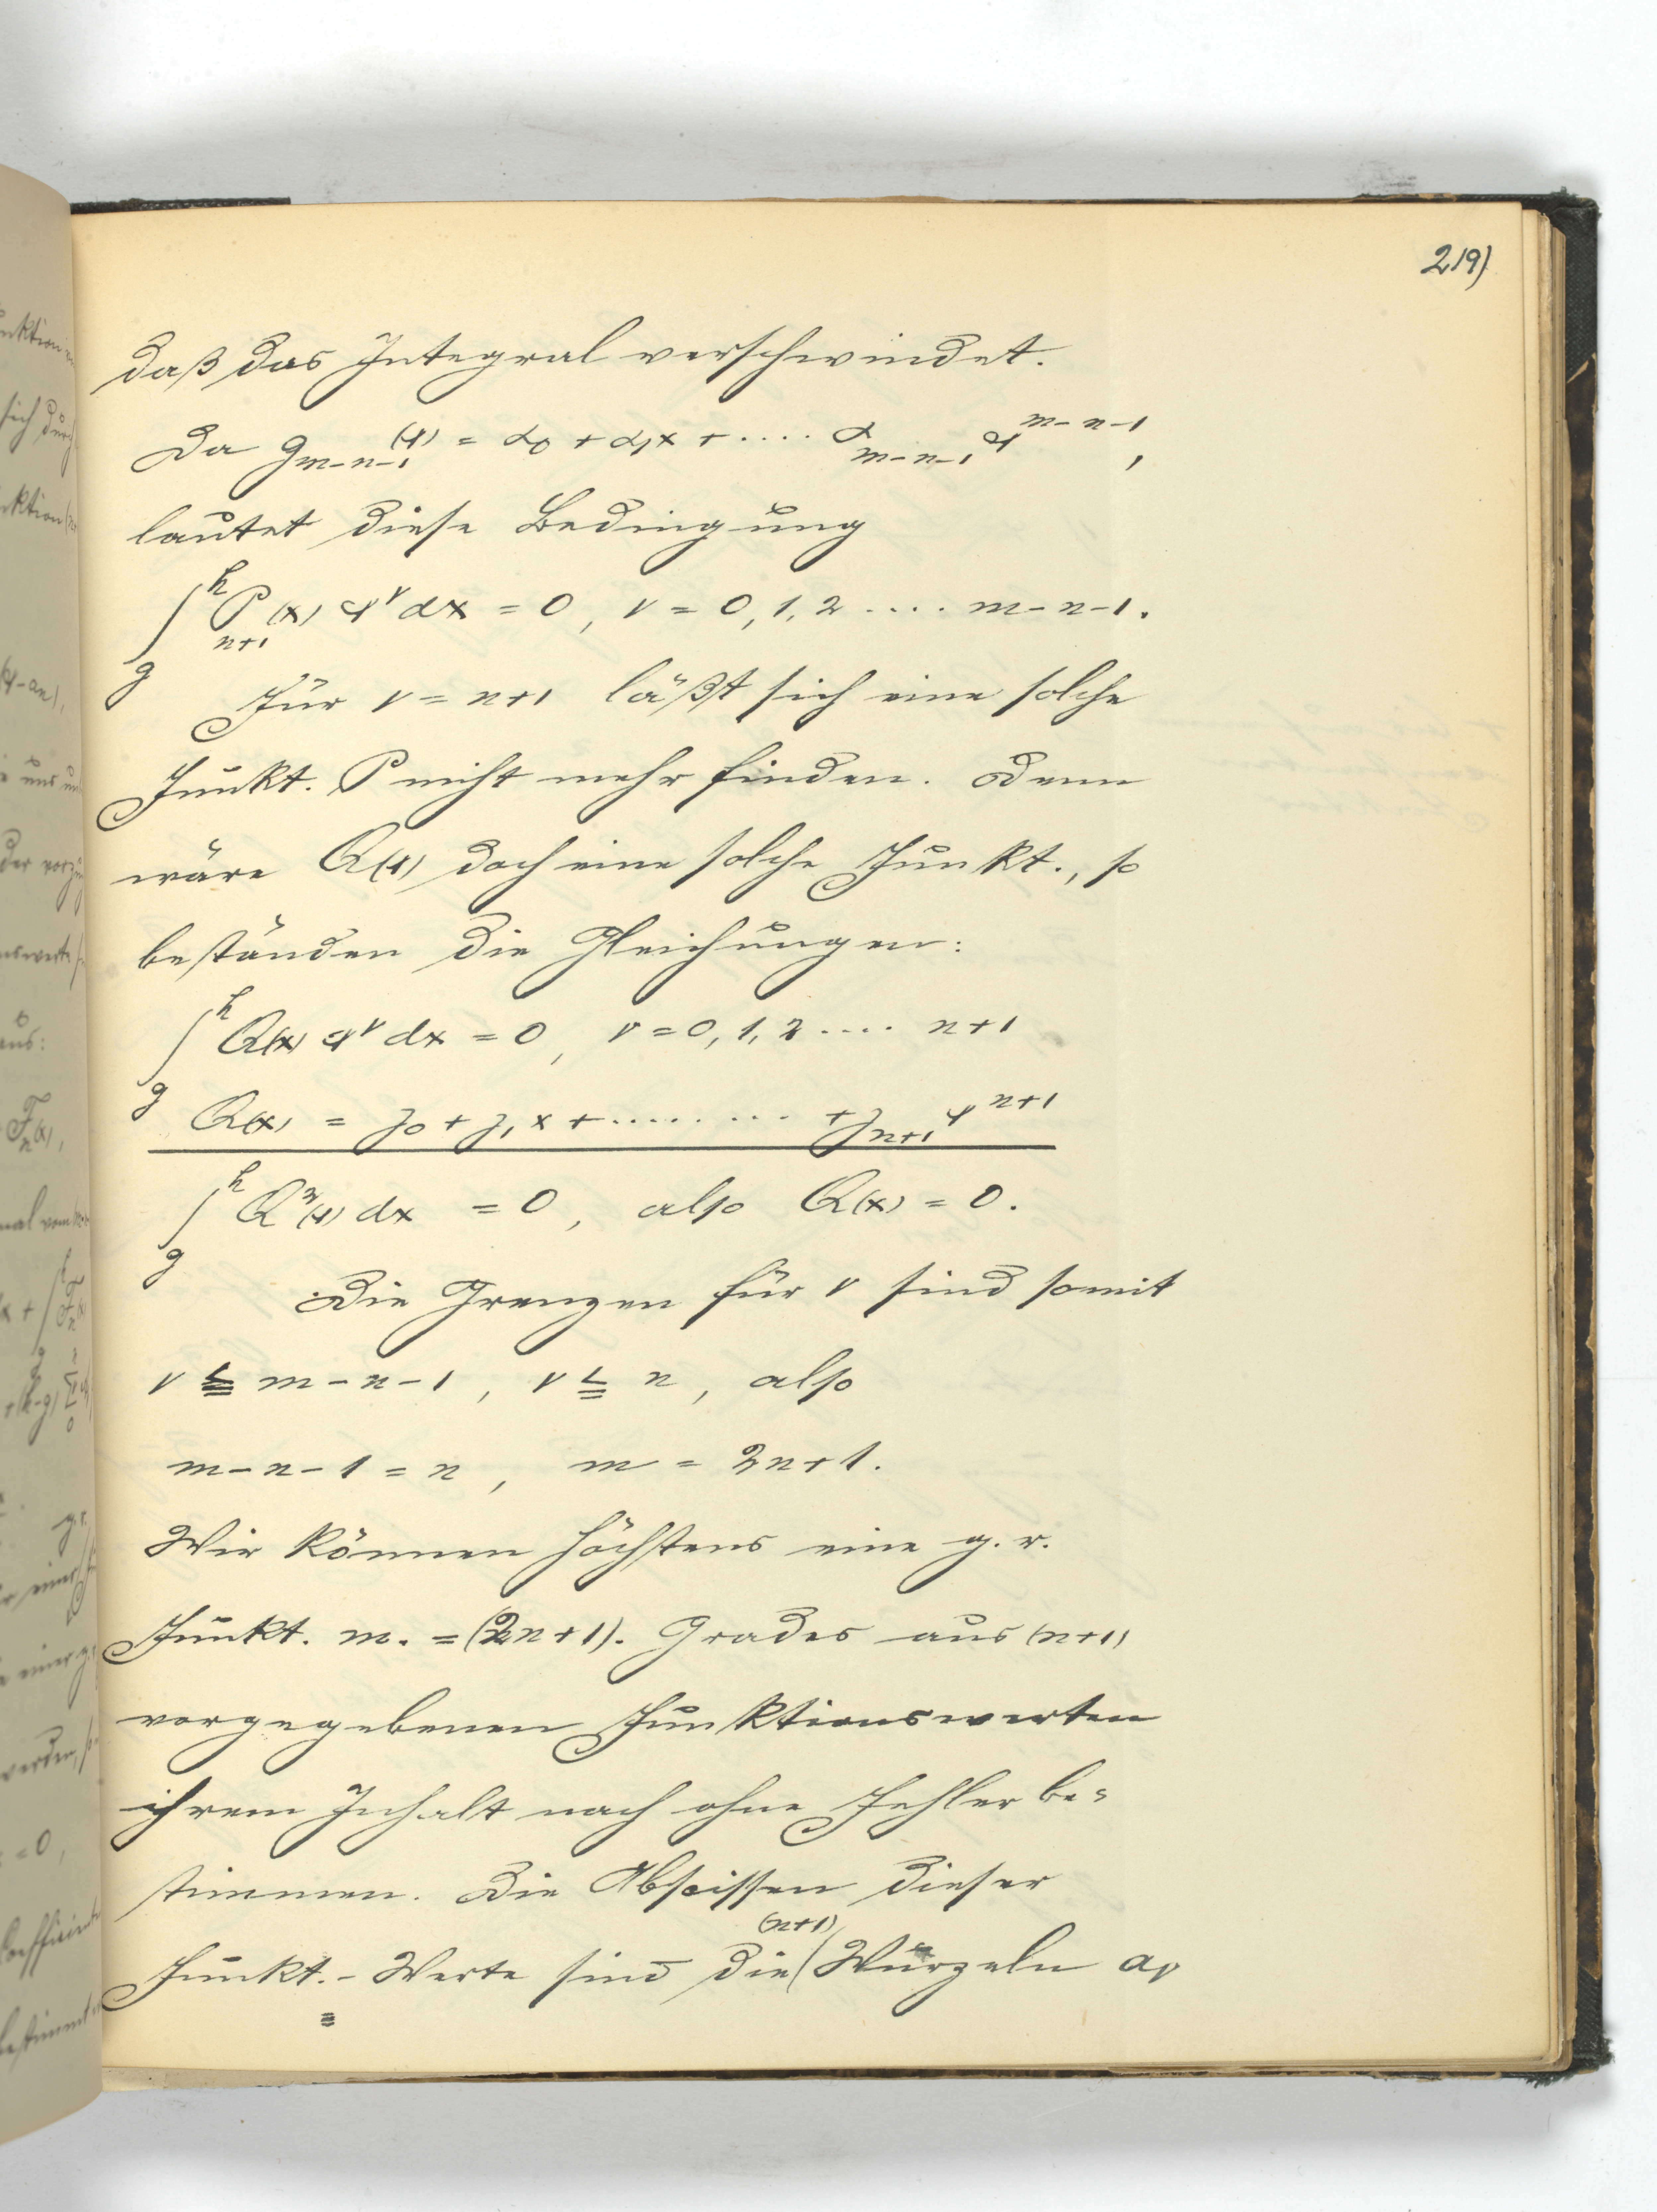 219)
daß das Integral verschwindet.
Da g_{m-n-1}(x) = α_0 + α_1 x + .... α_{m-n-1} x^{m-n-1},
lautet diese Bedingung
∫_g^h P_{n+1}(x) x^ν dx = 0, ν = 0, 1, 2 .... m-n-1.
Für ν = n+1 läßt sich eine solche
Funkt. P nicht mehr finden. Denn
wäre Q(x) doch eine solche Funkt., so
beständen die Gleichungen:
∫_g^h Q(x) x^ν dx = 0, ν = 0, 1, 2 .... n+1
Q(x) = γ_0 + γ_1 x + ......... + γ_{n+1} x^{n+1}
∫_g^h Q^2(x) dx = 0, also Q(x) = 0.
Die Grenzen für ν sind somit
ν ≦ m-n-1, ν ≦ n, also
m-n-1 = n, m = 2n+1.
Wir können höchstens eine g. r.
Funkt. m. = (2n+1). Grades aus (n+1)
vorgegebenen Funktionswerten
ihrem Inhalt nach ohne Fehler be=
stimmen. Die Abscissen dieser
Funkt.-Werte sind die (n+1) Wurzeln a_ν